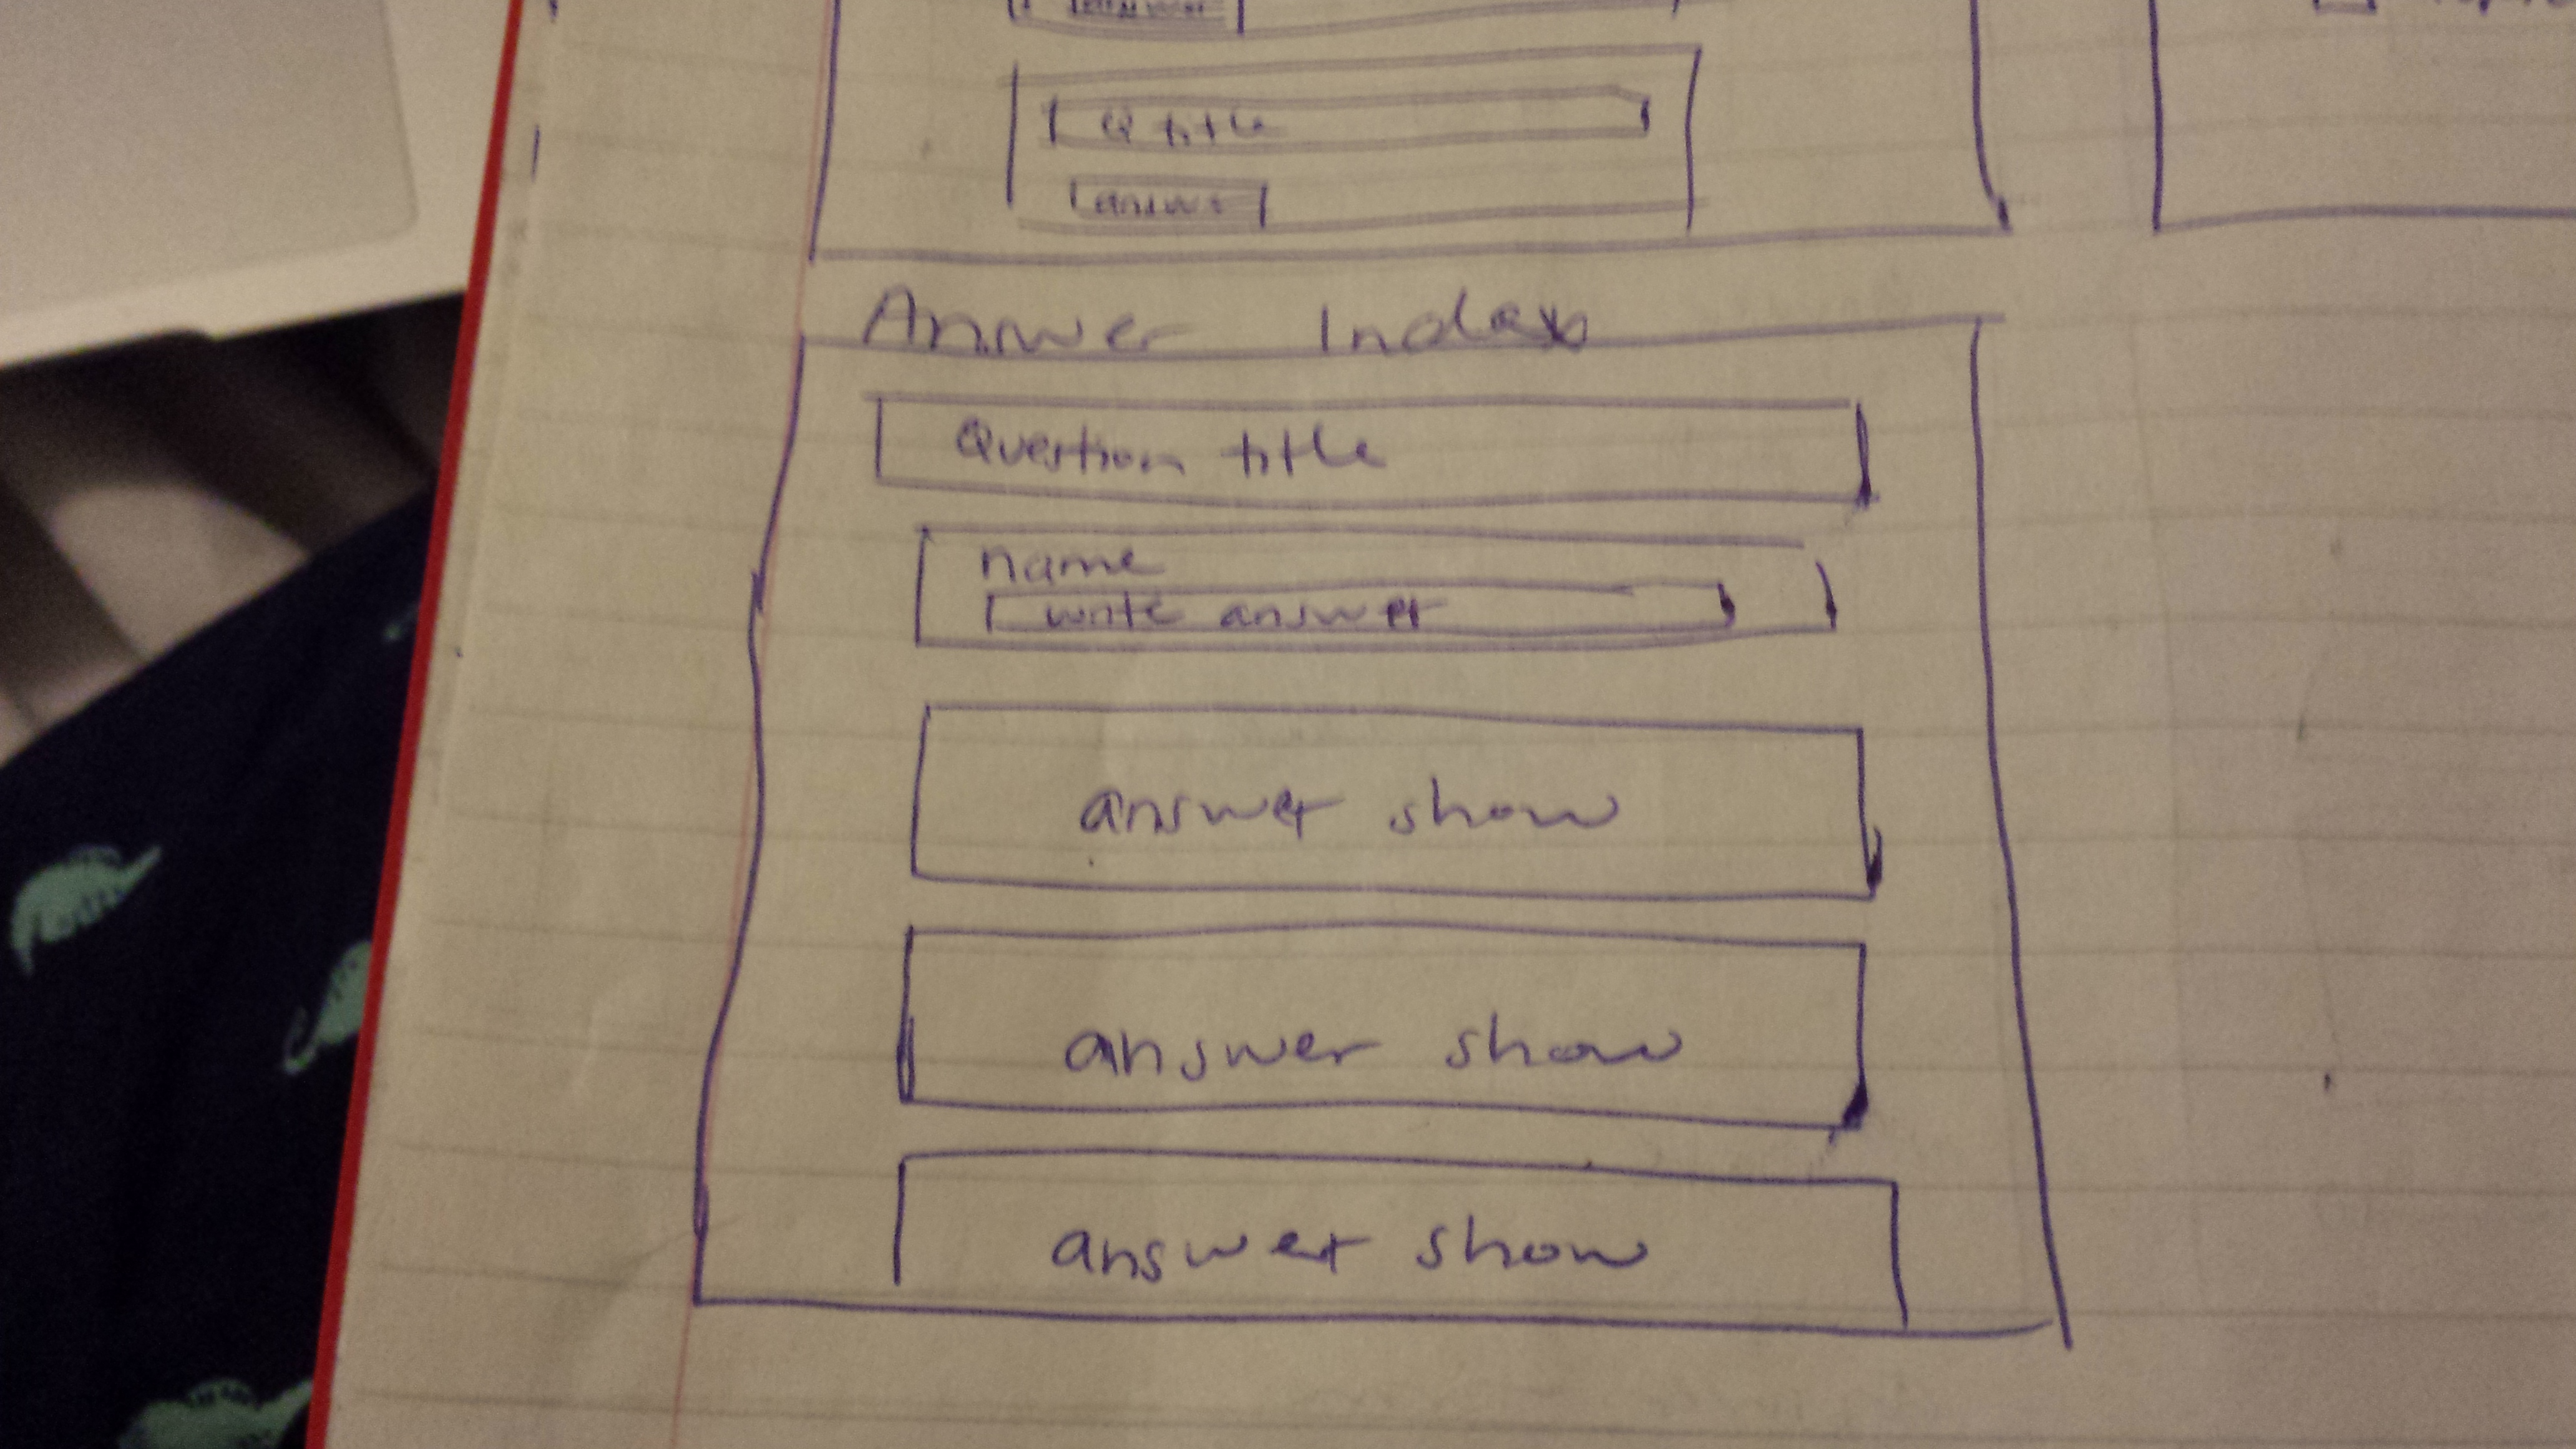 Q title
answer
Answer Index
Question title
name
write answer
answer show
answer show
answer show